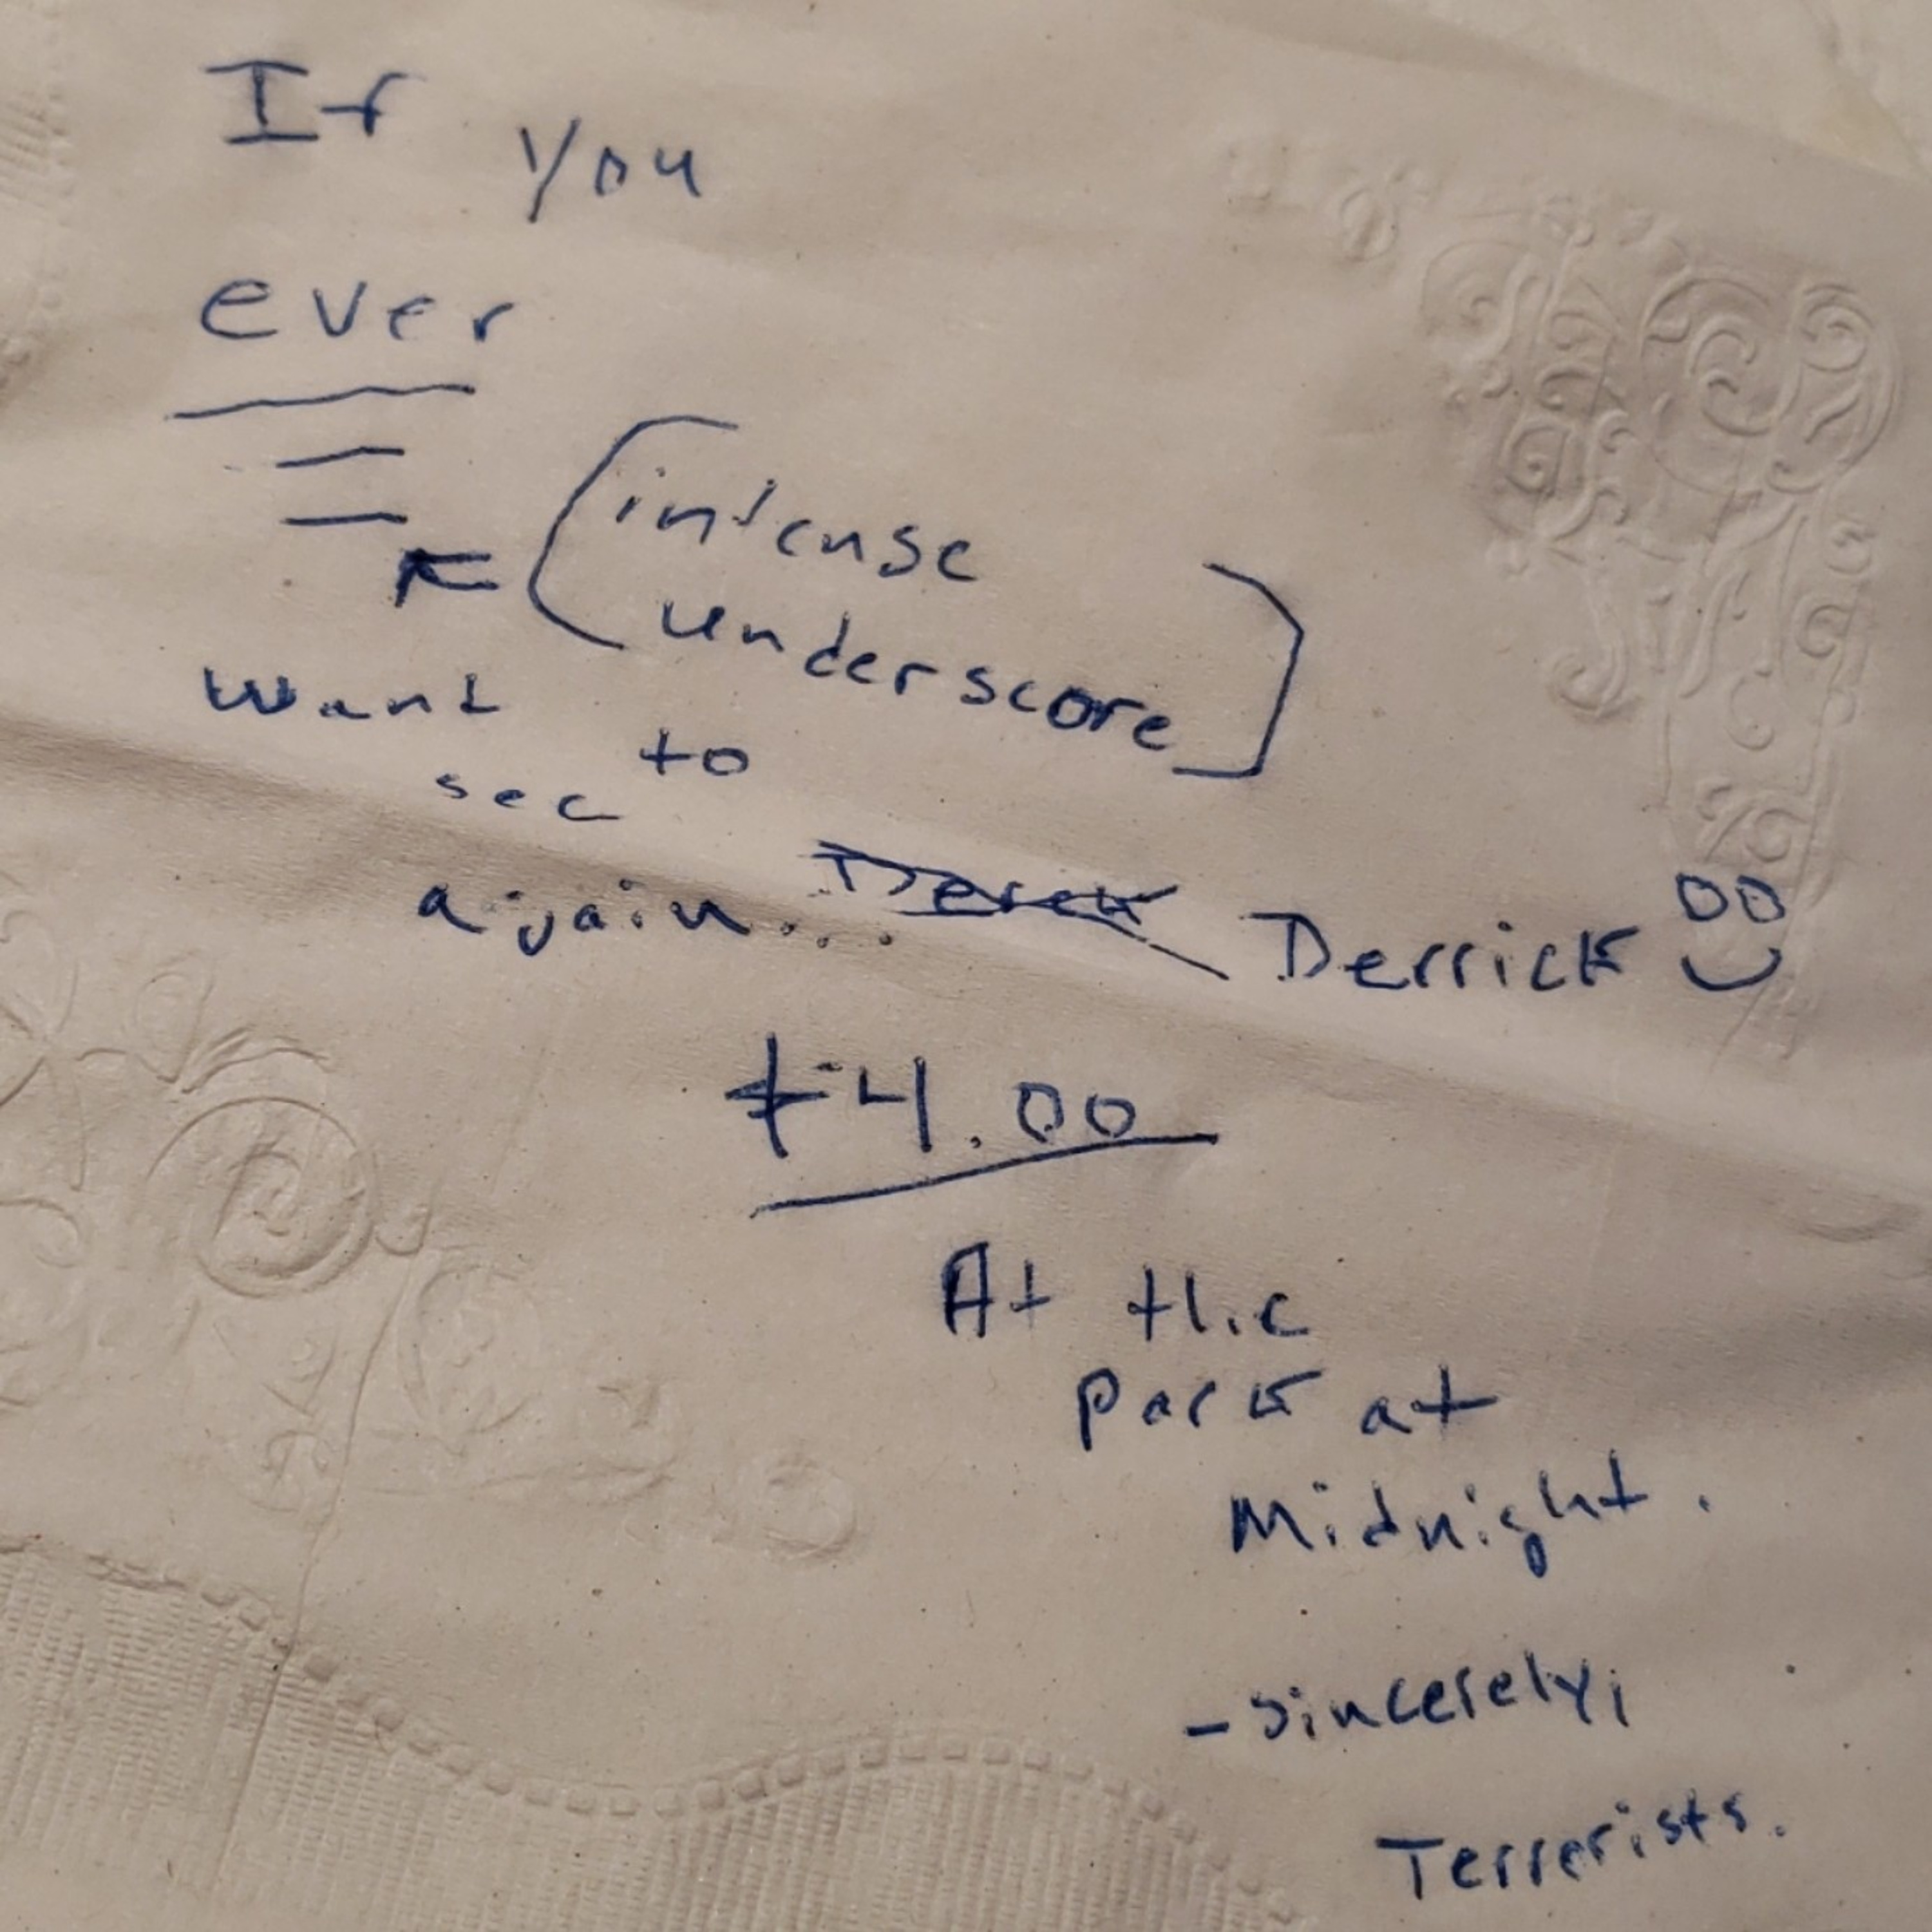 If you
ever
(intense
underscore]
want to
see
again... Derek Derrick
$4.00
At the
park at
Midnight.
-Sincerely,
Terrerists.